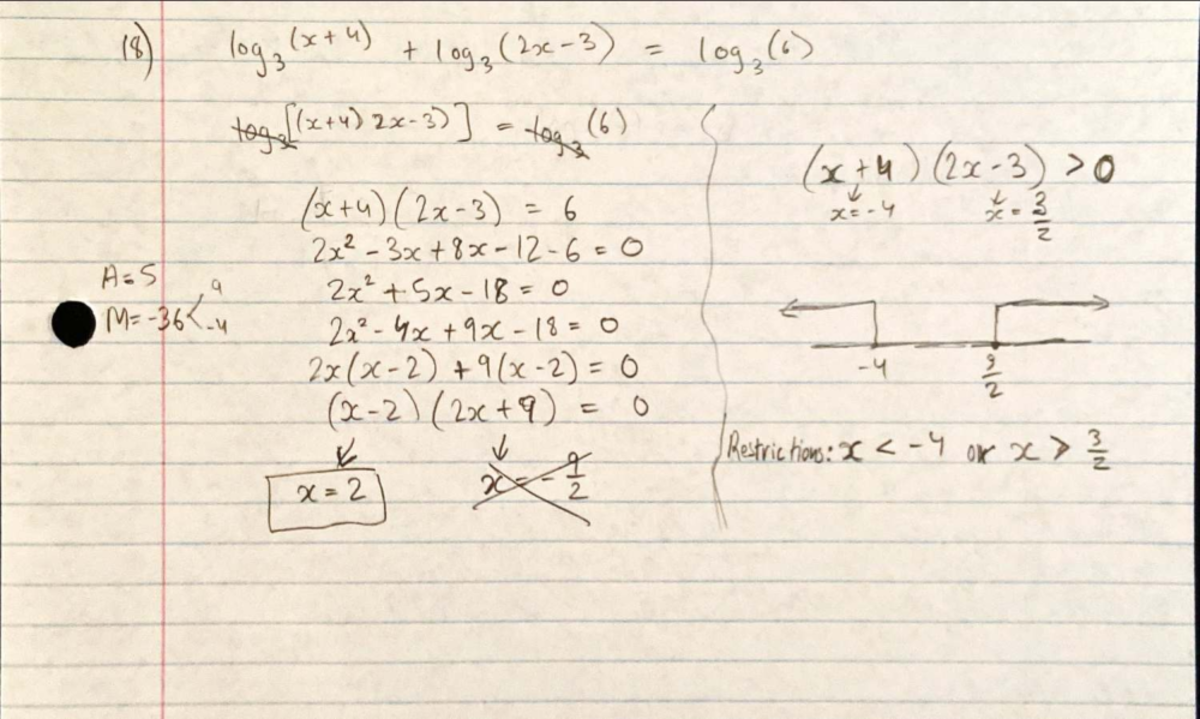 18) log₃(x+4) + log₃(2x-3) = log₃(6)
log₃[(x+4) 2x-3)] = log₃(6)
(x+4)(2x-3) = 6
2x² - 3x + 8x - 12 - 6 = 0
A=5
2x² + 5x - 18 = 0
M=-36< 9 -4
2x² - 4x + 9x - 18 = 0
2x(x-2) + 9(x-2) = 0
(x-2)(2x+9) = 0
x = 2
x = -9/2
(x+4)(2x-3) > 0
x=-4
x=3/2
-4
3/2
Restrictions: x < -4 or x > 3/2